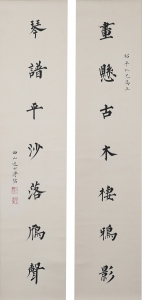 畫懸古木棲鴉影
琴譜平沙落鴈聲